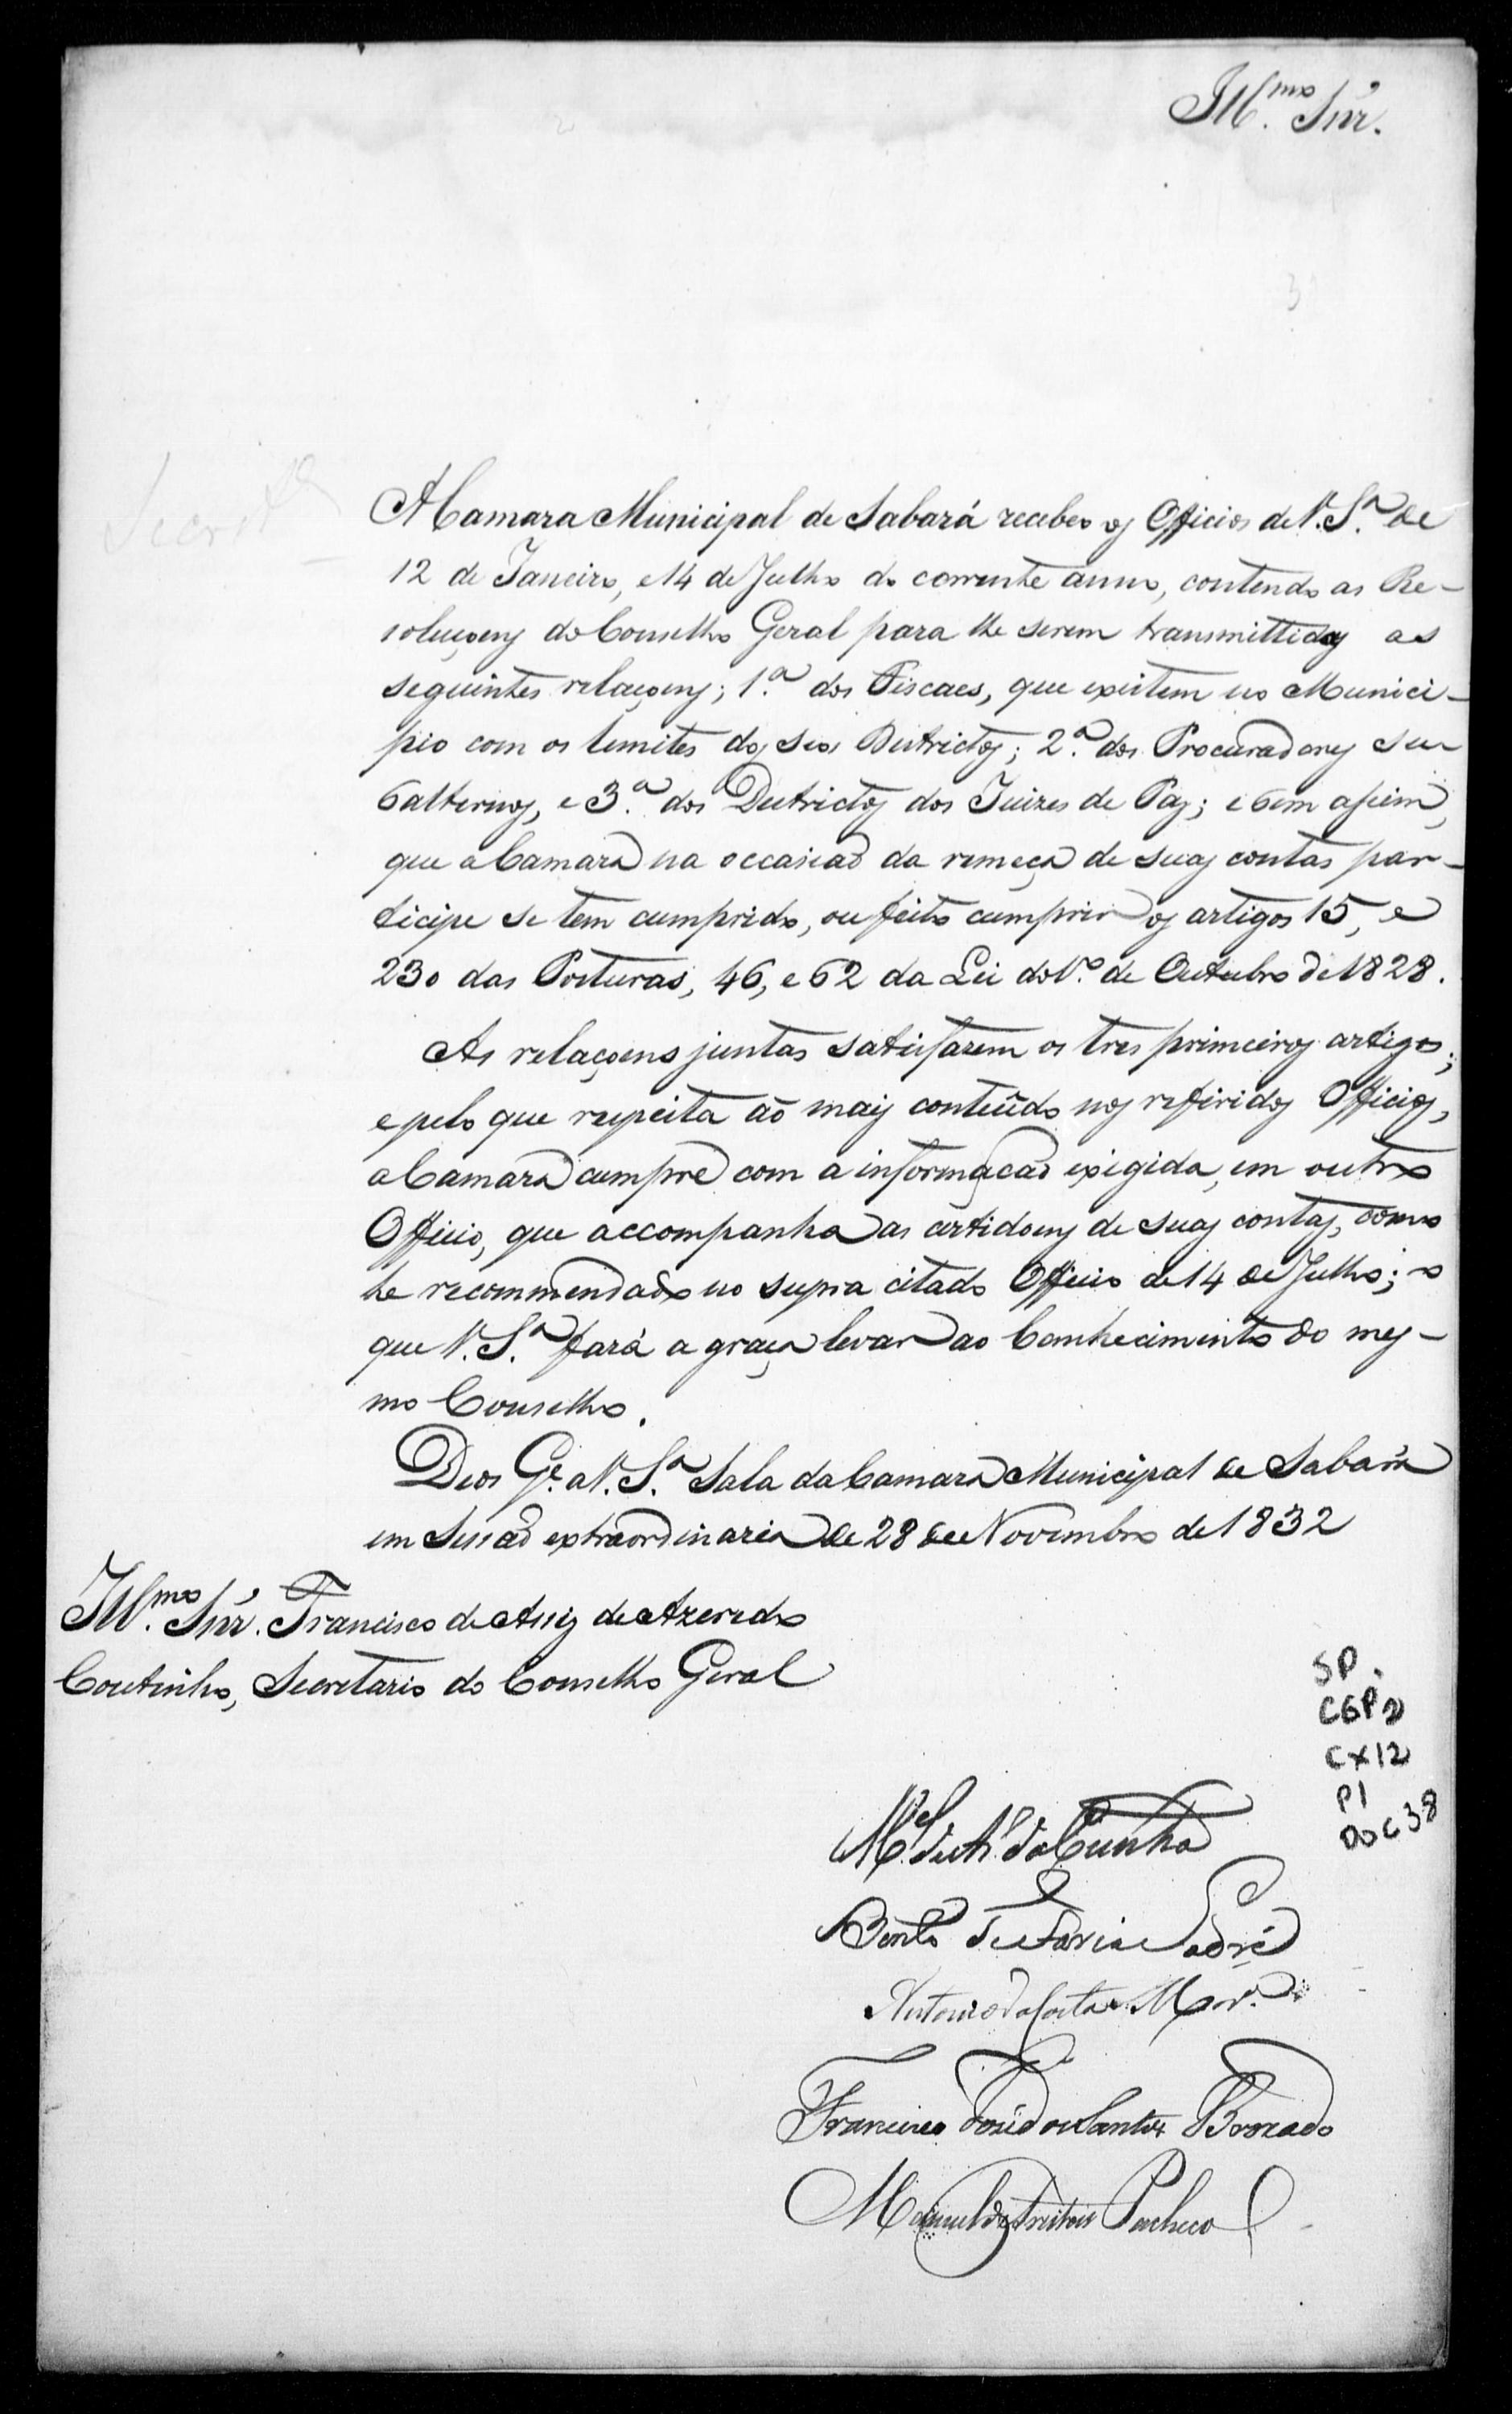 Ill.mo Snr.
A Camara Municipal de Sabará recebeo os Officios de V. S.ª de
12 de Janeiro, e 14 de Julho do corrente anno, contendo as Re-
soluçoens do Conselho Geral para lhe serem transmittidas as
seguintes relaçoens; 1.ª dos Fiscaes, que existem no Munici-
pio com os limites dos seos Districtos; 2.ª dos Procuradores su-
balternos, e 3.ª dos Destrictos dos Juizes de Paz; e bem assim,
que a Camara na occasiaõ da remeça de suas contas par-
ticipe se tem cumprido, ou feito cumprir os artigos 15, e
230 das Posturas, 46, e 62 da Lei do 1.º de Outubro de 1828.
As relaçoens juntas satisfazem os tres primeiros artigos;
e pelo que respeita aõ mais conteúdo nos referidos Officios,
a Camara cumpre com a informaçaõ exigida, em outro
Officio, que accompanha as certidoens de suas contas, como
he recommendado no supra citado Officio de 14 de Julho; o
que V. S.ª fará a graça levar ao Conhecimento do mes-
mo Conselho.
Deos G.e a V. S.ª Sala da Camara Municipal de Sabará
em Sessaõ extraordinaria de 28 de Novembro de 1832
Ill.mo Snr. Francisco de Assis de Azeredo
Coutinho, Secretario do Conselho Geral
SP.
CGP2
CX12
P1
DOC 38
M.el da Cunha
Bento de Faria Sodré
Antonio da Costa Mor.ª
Francisco José dos Santos Brozado
Manuel de Freitas Pacheco